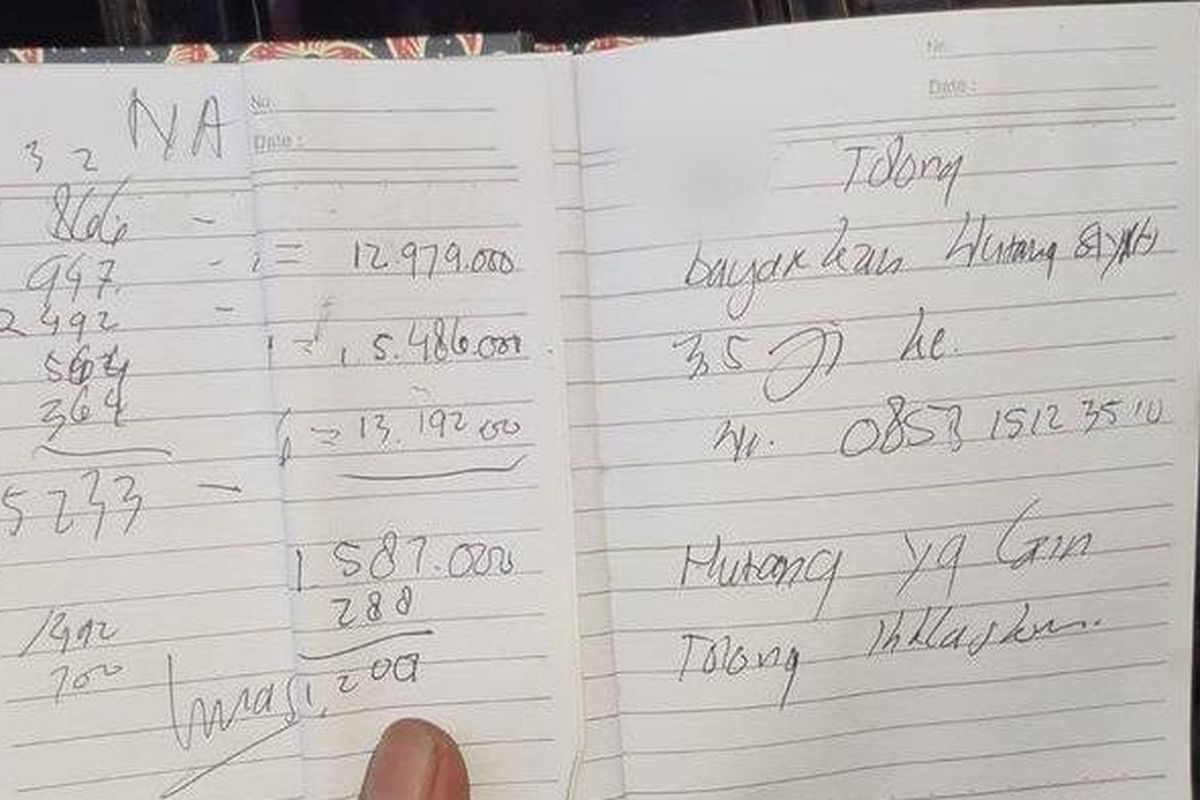 NA
3 2
866 -
947 -
2492 -
564
364
5233 -
1392
700
No.
Date :
= 12.979.000
= 5.486.000
= 13.192.000
1 587.000
288
lunas 1.200
No
Date :
Tolong
bayarkan Hutang saya
35 jt ke.
Hp. 0853 1512 3510
Hutang yg lain
Tolong ikhlaskan.